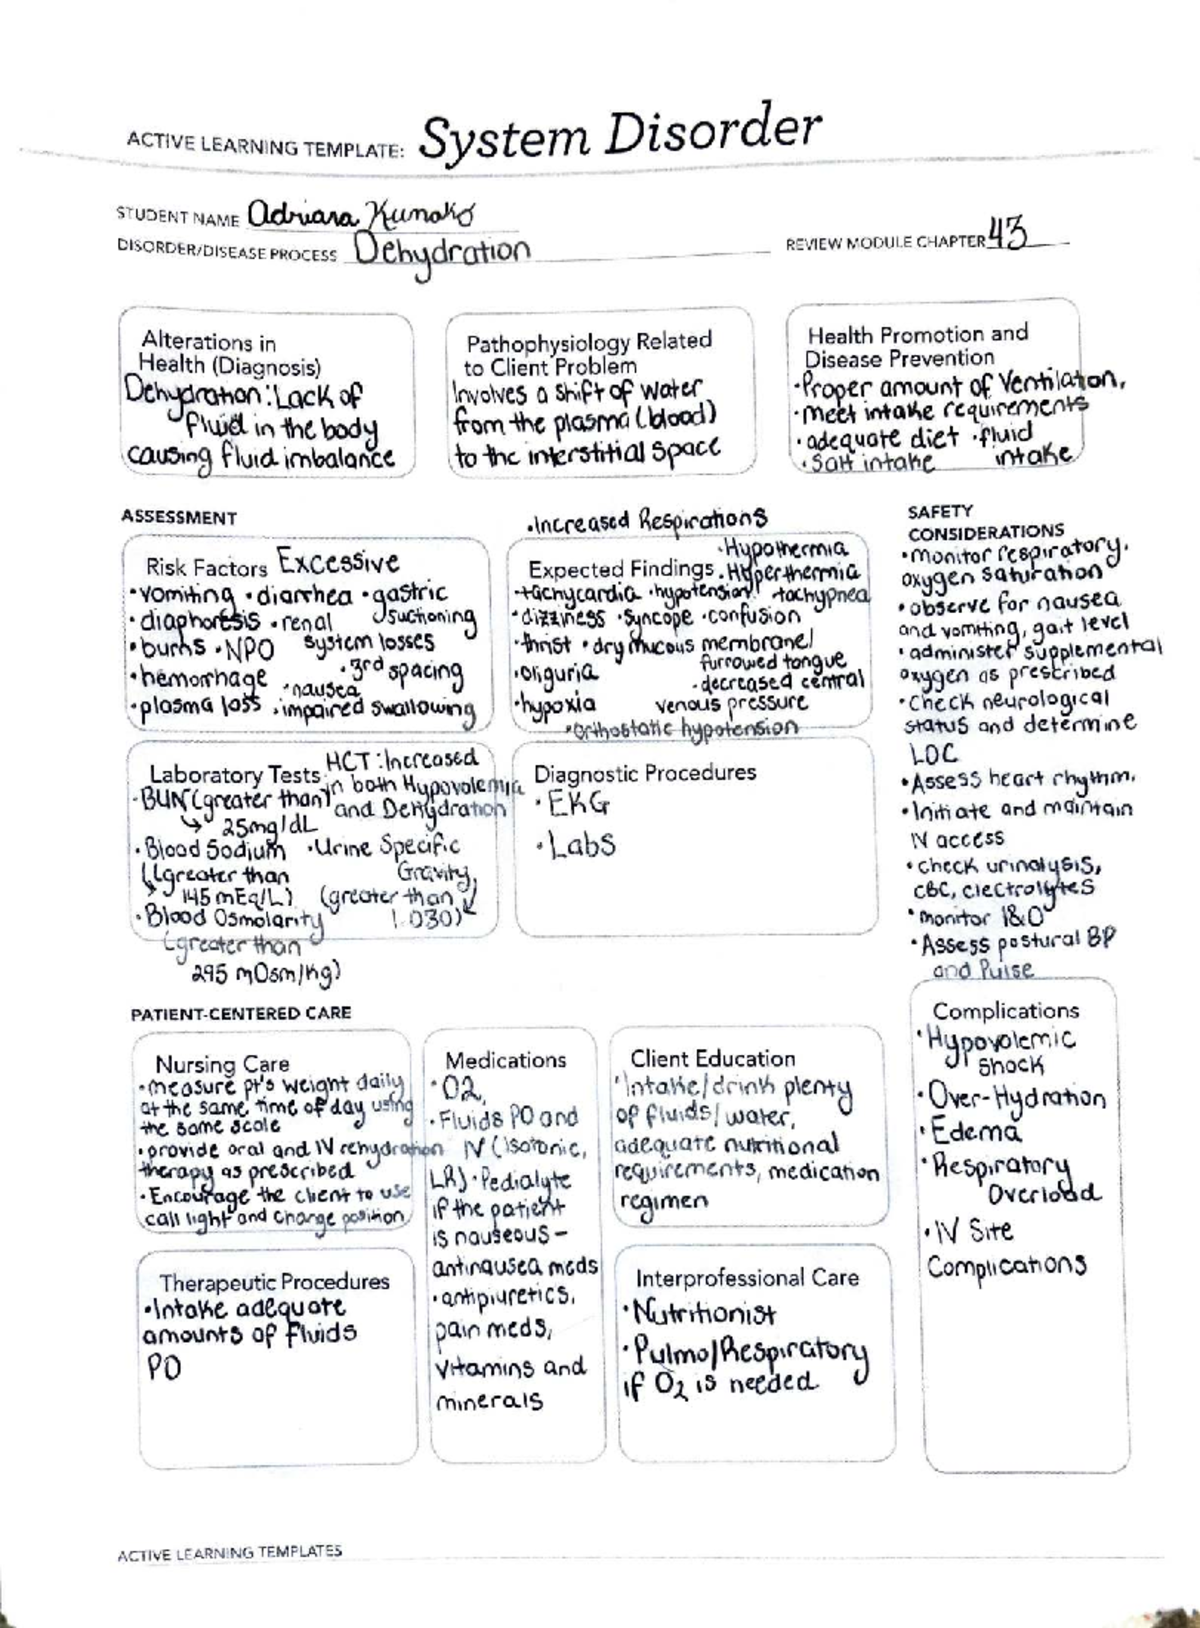 ACTIVE LEARNING TEMPLATE: System Disorder
STUDENT NAME Adriana Kunako
DISORDER/DISEASE PROCESS Dehydration
REVIEW MODULE CHAPTER 43
Alterations in
Health (Diagnosis)
Dehydration: Lack of
fluid in the body
causing fluid imbalance
Pathophysiology Related
to Client Problem
Involves a shift of water
from the plasma (blood)
to the interstitial space
Health Promotion and
Disease Prevention
•Proper amount of Ventilation,
•meet intake requirements
•adequate diet •fluid
•Salt intake intake
ASSESSMENT
Risk Factors Excessive
•vomiting •diarrhea •gastric
•diaphoresis •renal suctioning
•burns •NPO system losses
•hemorrhage •nausea •3rd spacing
•plasma loss •impaired swallowing
•Increased Respirations
•Hypothermia
Expected Findings •Hyperthermia
•tachycardia •hypotension •tachypnea
•dizziness •Syncope •confusion
•thrist •dry mucous membrane/
•oliguria furrowed tongue
•decreased central
•hypoxia venous pressure
•orthostatic hypotension
SAFETY
CONSIDERATIONS
•monitor respiratory,
oxygen saturation
•observe for nausea
and vomiting, gait level
•administer supplemental
oxygen as prescribed
•Check neurological
status and determine
LOC
•Assess heart rhythm.
•Initiate and maintain
IV access
•check urinalysis,
CBC, electrolytes
•monitor I&O
•Assess postural BP
and Pulse
Laboratory Tests
HCT: Increased
in both Hypovolemia
and Dehydration
•BUN (greater than)
↳ 25mg/dL
•Blood Sodium
(greater than
↳ 145 mEq/L)
•Urine Specific
Gravity,
(greater than ↙
1.030)
•Blood Osmolarity
(greater than
295 mOsm/kg)
Diagnostic Procedures
•EKG
•Labs
PATIENT-CENTERED CARE
Nursing Care
•measure pt's weight daily
at the same time of day using
the same scale
•provide oral and IV rehydration
therapy as prescribed
•Encourage the client to use
call light and change position
Medications
•O2,
•Fluids PO and
IV (Isotonic,
LR) •Pedialyte
if the patient
is nauseous-
antinausea meds
•antipiuretics,
pain meds,
vitamins and
minerals
Client Education
•Intake/drink plenty
of fluids/water,
adequate nutritional
requirements, medication
regimen
Complications
•Hypovolemic
Shock
•Over-Hydration
•Edema
•Respiratory
Overload
•IV Site
Complications
Therapeutic Procedures
•Intake adequate
amounts of Fluids
PO
Interprofessional Care
•Nutritionist
•Pulmo/Respiratory
if O2 is needed
ACTIVE LEARNING TEMPLATES